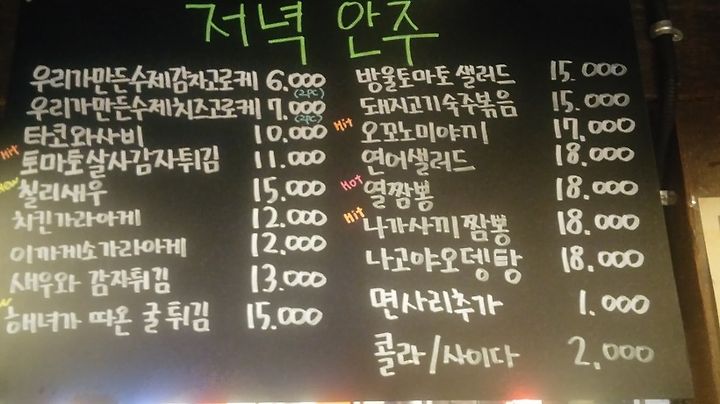 저녁 안주
우리가만든수제감자고로케 6.000
(2PC)
우리가만든수제치즈고로케 7.000
(2PC)
타코와사비 10.000
Hit 토마토살사감자튀김 11.000
New 칠리새우 15.000
치킨가라아게 12.000
이까게소가라아게 12.000
새우와 감자튀김 13.000
해녀가 따온 굴튀김 15.000
방울토마토샐러드 15.000
돼지고기숙주볶음 15.000
Hit 오꼬노미야끼 17.000
연어샐러드 18.000
Hot 열짬뽕 18.000
Hit 나가사끼짬뽕 18.000
나고야오뎅탕 18.000
면사리추가 1.000
콜라/사이다 2,000